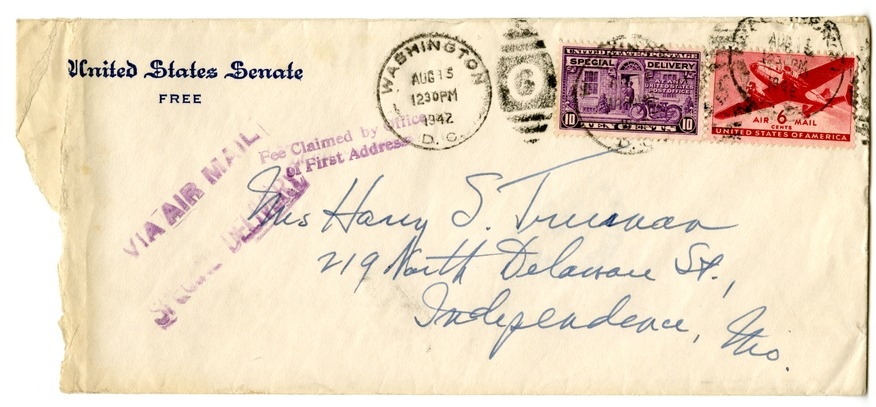 United States Senate
FREE
WASHINGTON
AUG 15
1230PM
1942
D.C.
UNITED STATES POSTAGE
SPECIAL DELIVERY
AT ANY
UNITED STATES
POST OFFICE
10 TEN CENTS 10
6
CENTS
AIR MAIL
UNITED STATES OF AMERICA
VIA AIR MAIL
Fee Claimed by Office
of First Address
SPECIAL DELIVERY
Mrs Harry S. Truman
219 North Delaware St.,
Independence, Mo.